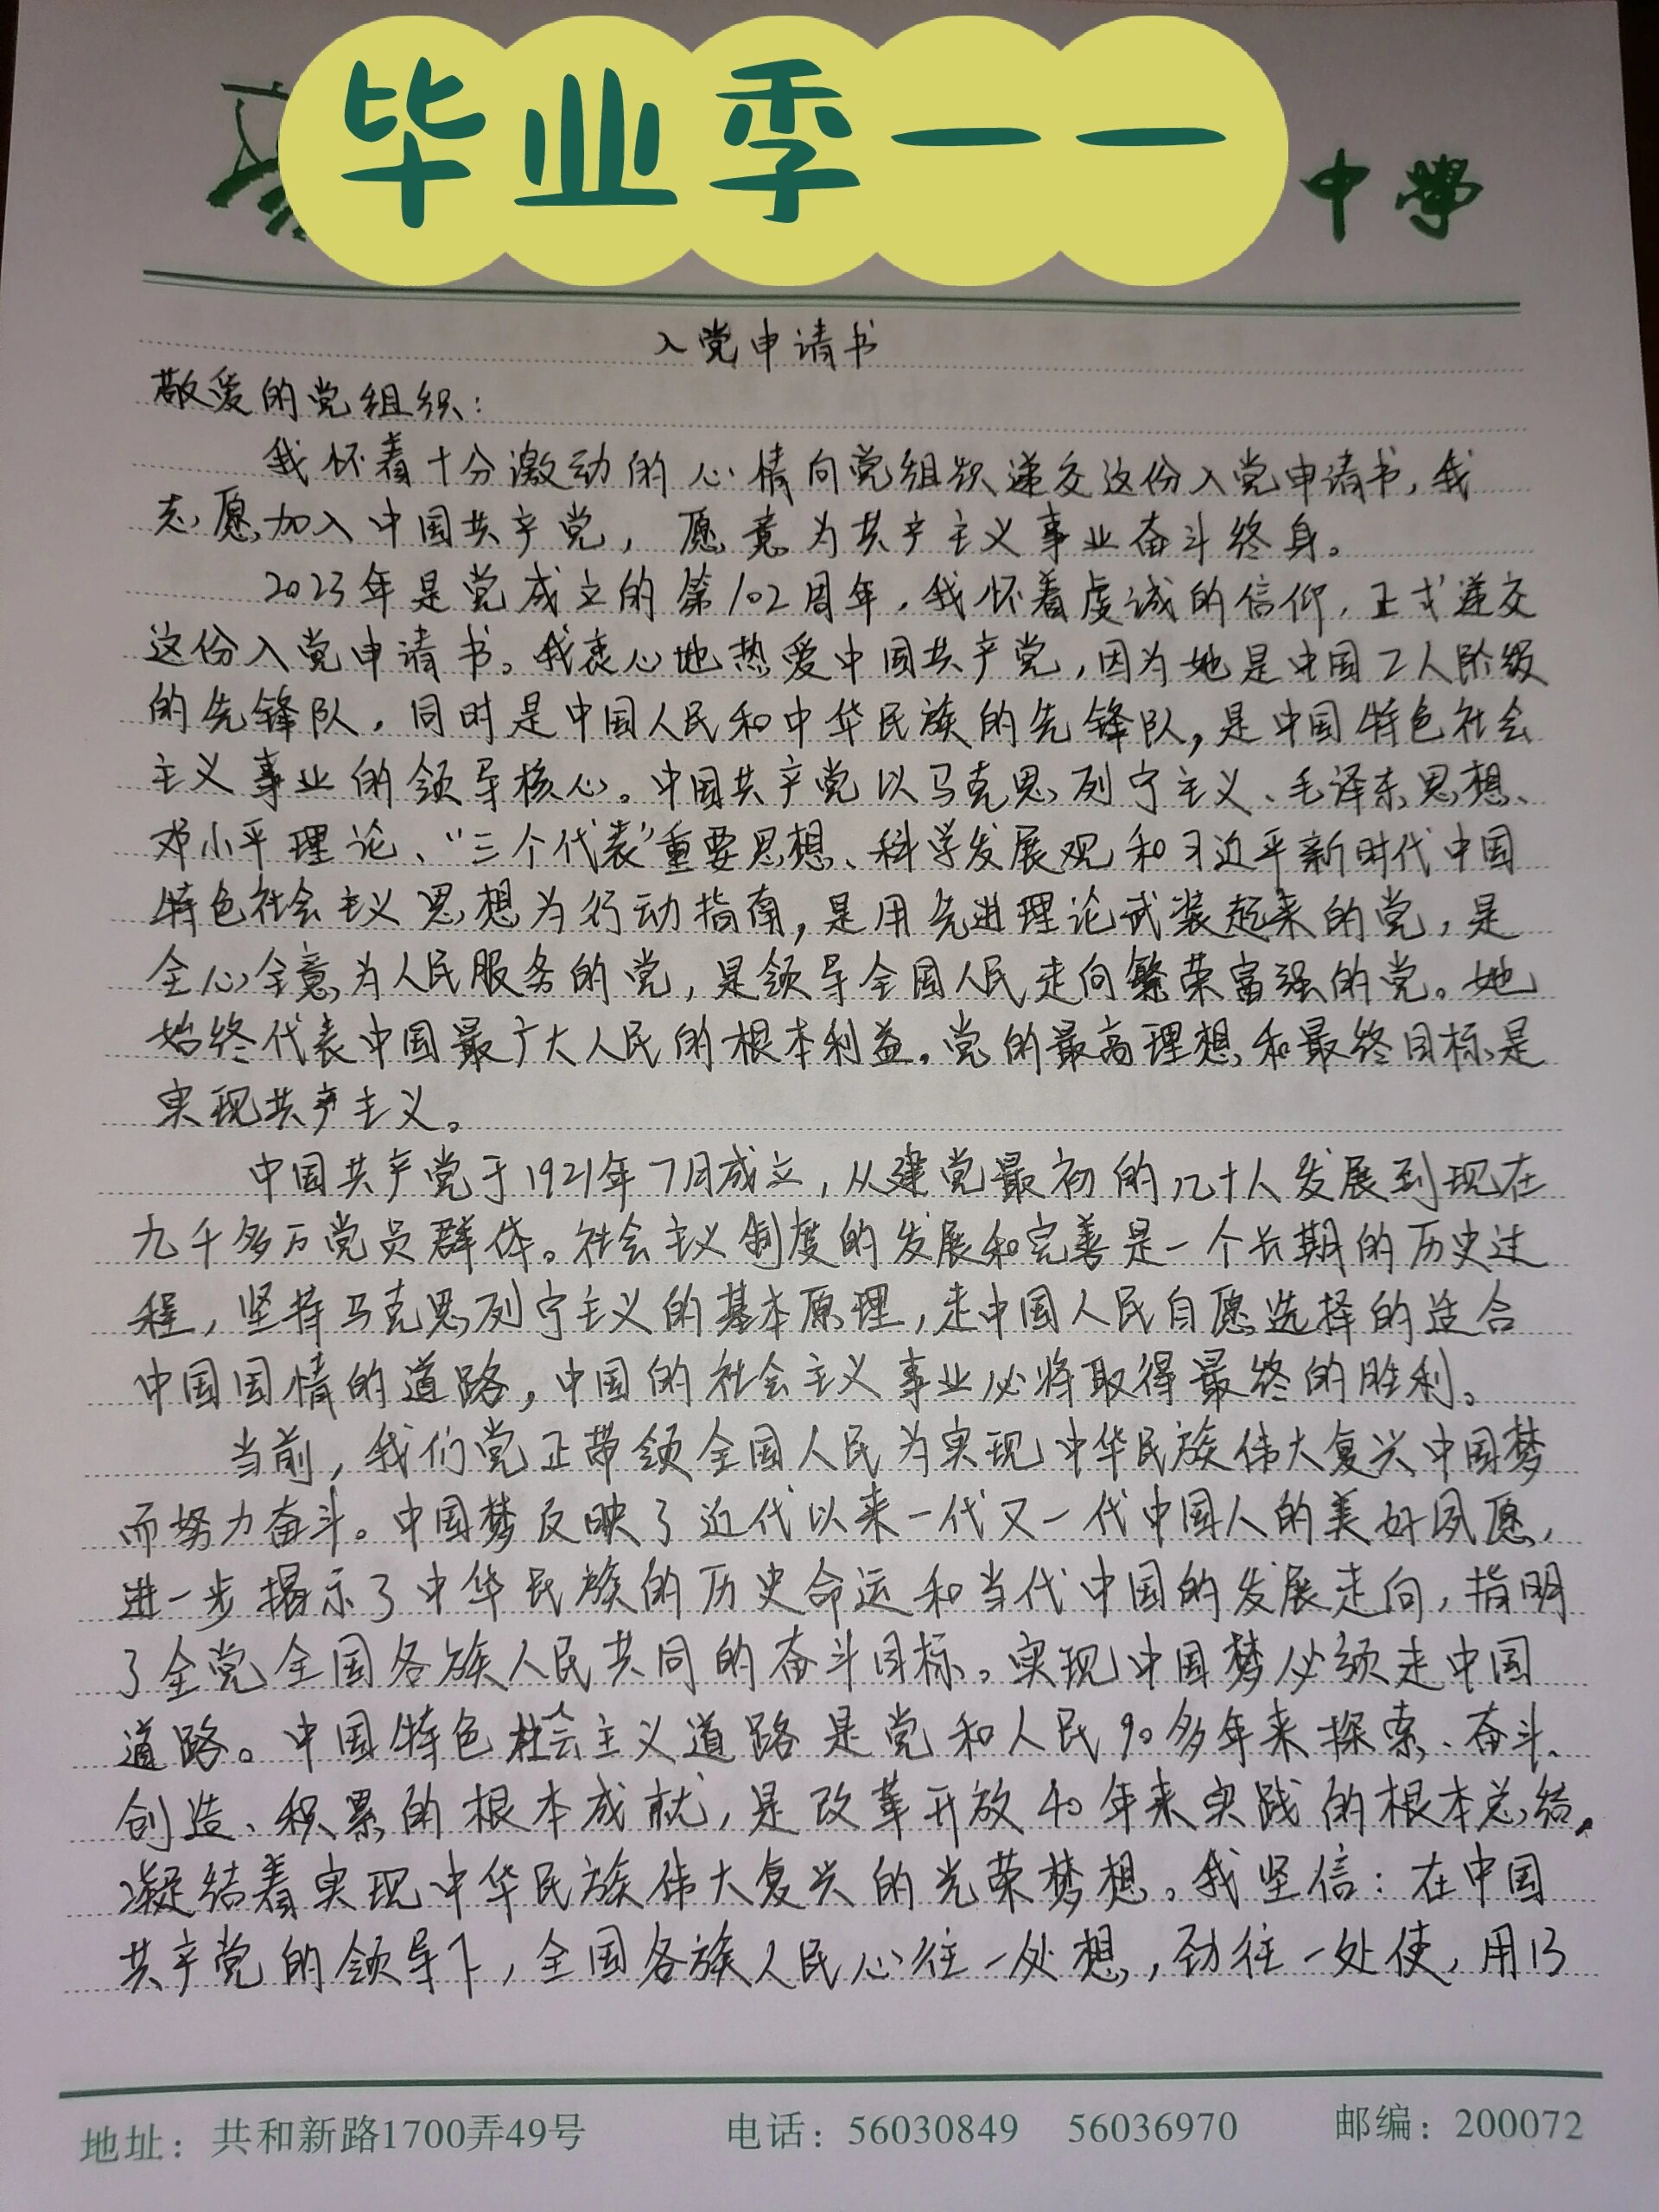 毕业季一一
中学
入党申请书
敬爱的党组织：
我怀着十分激动的心情向党组织递交这份入党申请书，我
志愿加入中国共产党，愿意为共产主义事业奋斗终身。
2023年是党成立的第102周年，我怀着虔诚的信仰，正式递交
这份入党申请书。我衷心地热爱中国共产党，因为她是中国工人阶级
的先锋队，同时是中国人民和中华民族的先锋队，是中国特色社会
主义事业的领导核心。中国共产党以马克思列宁主义、毛泽东思想、
邓小平理论、“三个代表”重要思想、科学发展观和习近平新时代中国
特色社会主义思想为行动指南，是用先进理论武装起来的党，是
全心全意为人民服务的党，是领导全国人民走向繁荣富强的党。她
始终代表中国最广大人民的根本利益。党的最高理想和最终目标是
实现共产主义。
中国共产党于1921年7月成立，从建党最初的几十人发展到现在
九千多万党员群体。社会主义制度的发展和完善是一个长期的历史过
程，坚持马克思列宁主义的基本原理，走中国人民自愿选择的适合
中国国情的道路，中国的社会主义事业必将取得最终的胜利。
当前，我们党正带领全国人民为实现中华民族伟大复兴中国梦
而努力奋斗。中国梦反映了近代以来一代又一代中国人的美好夙愿，
进一步揭示了中华民族的历史命运和当代中国的发展走向，指明
了全党全国各族人民共同的奋斗目标。实现中国梦必须走中国
道路。中国特色社会主义道路是党和人民90多年来探索、奋斗、
创造、积累的根本成就，是改革开放40年来实践的根本总结，
凝结着实现中华民族伟大复兴的光荣梦想。我坚信：在中国
共产党的领导下，全国各族人民心往一处想，劲往一处使，用13
地址：共和新路1700弄49号 电话：56030849 56036970 邮编：200072